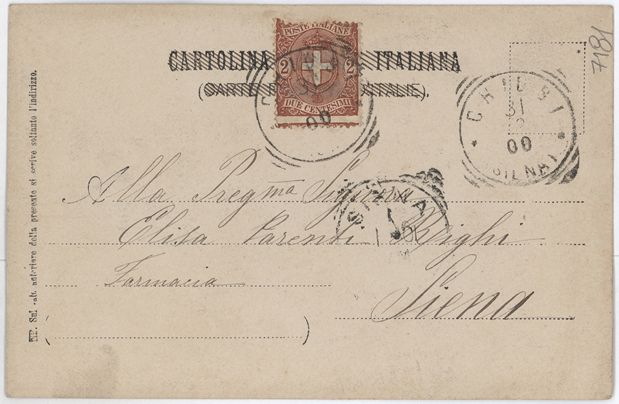 CARTOLINA ITALIANA
(CARTE POSTALE).
POSTE ITALIANE
2 2
DUE CENTESIMI
CHIUSI
31
00
(SIENA)
00
SIENA
7181
Alla Pregma Signora
Elisa Parenti Righi
Farmacia
Siena
NB. Sul lato anteriore della presente si scrive soltanto l'indirizzo.